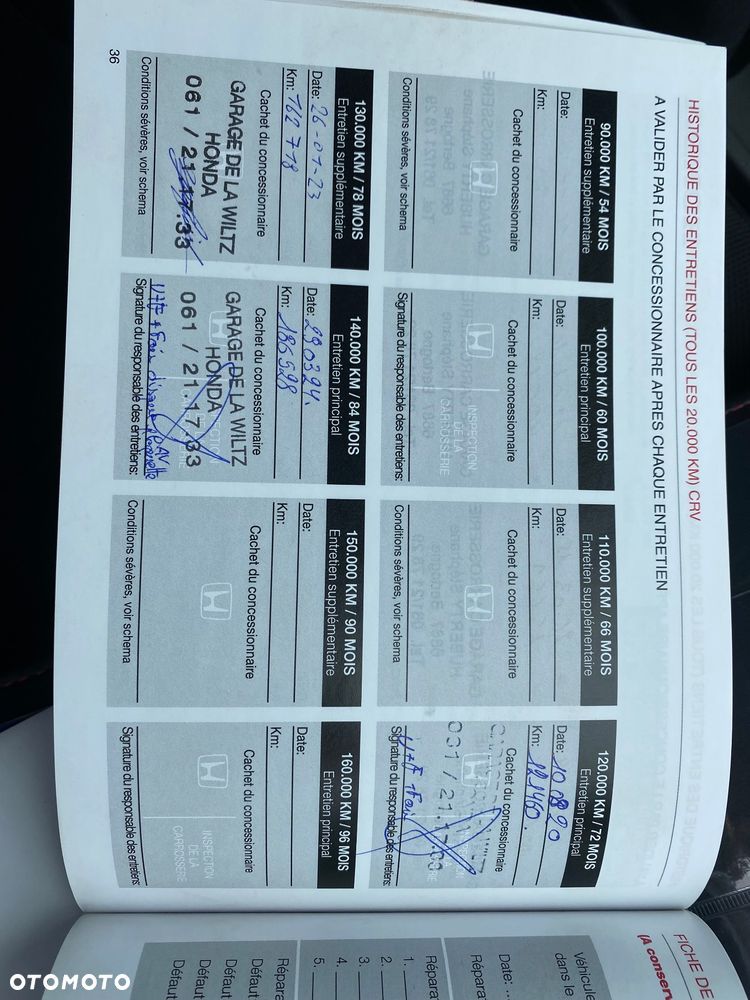 HISTORIQUE DES ENTRETIENS (TOUS LES 20.000 KM) CRV
A VALIDER PAR LE CONCESSIONNAIRE APRES CHAQUE ENTRETIEN
90.000 KM / 54 MOIS
Entretien supplémentaire
Date:
Km:
Cachet du concessionnaire
Conditions sévères, voir schema
100.000 KM / 60 MOIS
Entretien principal
Date:
Km:
Cachet du concessionnaire
INSPECTION
DE LA
CARROSSERIE
Signature du responsable des entretiens:
110.000 KM / 66 MOIS
Entretien supplémentaire
Date:
Km:
Cachet du concessionnaire
Conditions sévères, voir schema
120.000 KM / 72 MOIS
Entretien principal
Date: 10 08 20
Km: 121460.
Cachet du concessionnaire
Signature du responsable des entretiens:
130.000 KM / 78 MOIS
Entretien supplémentaire
Date: 26-01-23
Km: 162 718
Cachet du concessionnaire
GARAGE DE LA WILTZ
HONDA
061 / 21.17.33
Conditions sévères, voir schema
140.000 KM / 84 MOIS
Entretien principal
Date: 290324.
Km: 186528
Cachet du concessionnaire
GARAGE DE LA WILTZ
HONDA
061 / 21.17.33
Signature du responsable des entretiens:
150.000 KM / 90 MOIS
Entretien supplémentaire
Date:
Km:
Cachet du concessionnaire
Conditions sévères, voir schema
160.000 KM / 96 MOIS
Entretien principal
Date:
Km:
Cachet du concessionnaire
INSPECTION
DE LA
CARROSSERIE
Signature du responsable des entretiens:
36
FICHE DE
(A conserv
Véhicule
dans le
Date: ...
Répara
Répara
1.
2.
3.
4.
5.
Répara
Défaut
Défaut
Défaut
Défaut
OTOMOTO